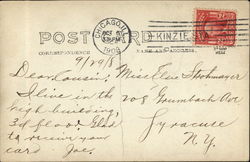 CHICAGO, ILL.
1908
KINZIE STA
POST CARD
CORRESPONDENCE
NAME AND ADDRESS
9/29/8
Dear Cousin:
I live in the
high building,
3d floor. Glad
to receive your
card Joe.
Miss Elsie Strohmayer
208 Grumbach Ave
Syracuse
N.Y.